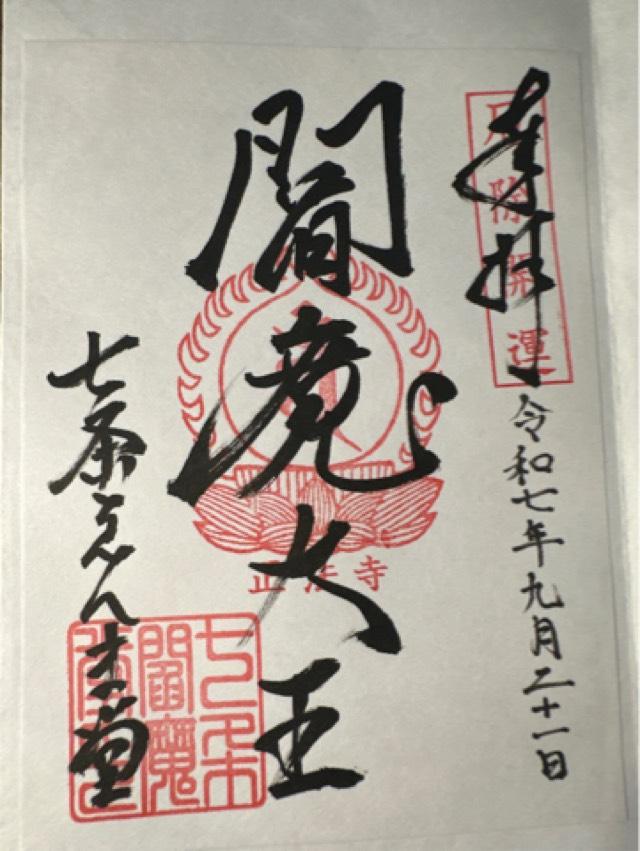 奉拝
厄除開運
令和七年九月二十一日
閻魔大王
正法寺
七条えんま堂
七条
閻魔